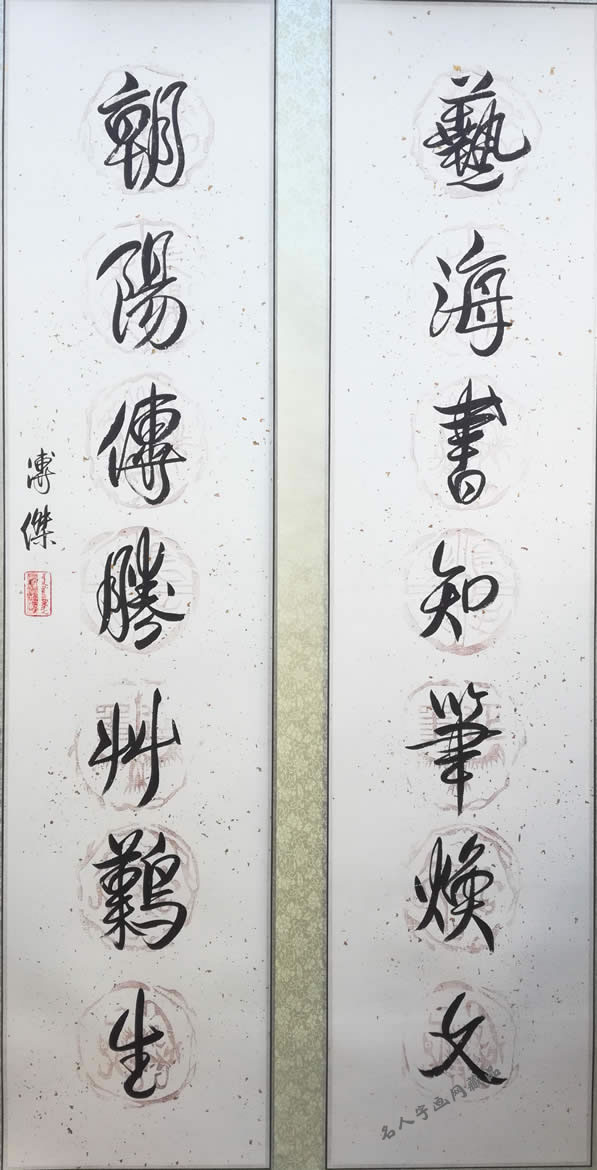 藝海書知筆煥文
朝陽傳勝艸生
溥傑
名人字画网藏品